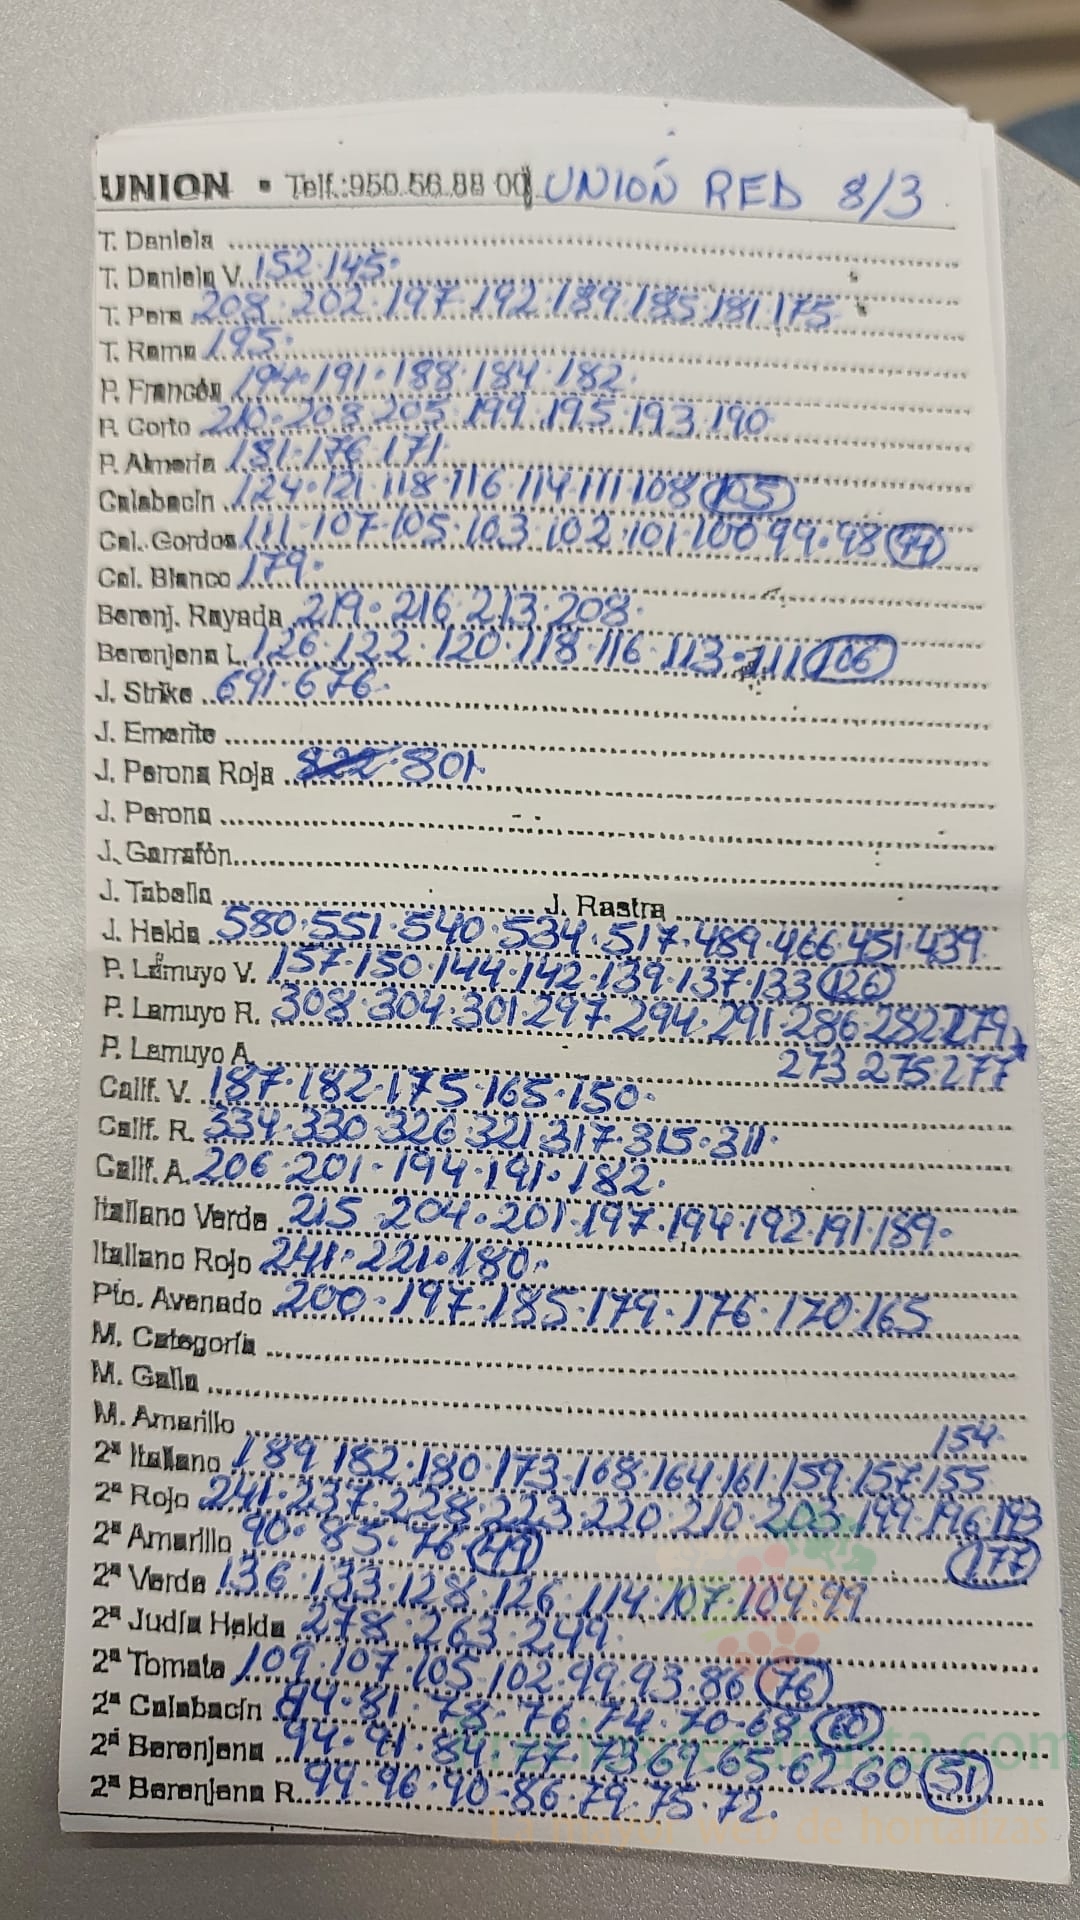 UNION • Telf.:950.56.88 00 UNIÓN RED 8/3
T. Daniela
T. Daniela V. 152·145·
T. Pera 208·202·197·192·189·185·181·175
T. Rama 195·
P. Francés 194·191·188·184·182·
P. Corto 210·208·205·199·195·193·190
P. Almería 181·176·171·
Calabacín 124·121·118·116·114·111·108 105
Cal. Gordos 111·107·105·103·102·101·100 99·98
Cal. Blanco 179·
Berenj. Rayada 219·216·213·208·
Berenjena L. 126·122·120·118·116·113·111 106
J. Strike 691·676·
J. Emerite
J. Perona Roja 822·801·
J. Perona
J. Garrafón
J. Tabella J. Rastra
J. Helda 580·551·540·534·517·489·466·451·439
P. Lamuyo V. 157·150·144·142·139·137·133 126
P. Lamuyo R. 308·304·301·297·294·291·286·282 279
P. Lamuyo A. 273 275·277
Calif. V. 187·182·175·165·150·
Calif. R. 334·330·326·321·317·315·311·
Calif. A. 206·201·194·191·182·
Italiano Verde 215·204·201·197·194·192·191·189·
Italiano Rojo 241·221·180·
Pto. Asado 200·197·185·179·176·170·165
M. Categoría
M. Galla
M. Amarillo 154
2ª Italiano 189 182·180·173·168·164·161·159·157·155
2ª Rojo 241·237·228·223·220·210·203·199·196·193
2ª Amarillo 90·85·76 177
2ª Verde 136·133·128·126·114·107·104·99
2ª Judía Helda 278·263·249·
2ª Tomate 109·107·105·102·99·93·86 76
2ª Calabacín 84·81·78·76·74·70·68 60
2ª Berenjena 94·91·84·77·73·69·65·62·60 51
2ª Berenjena R. 99·96·90·86·79·75·72·
La mayor web de hortalizas